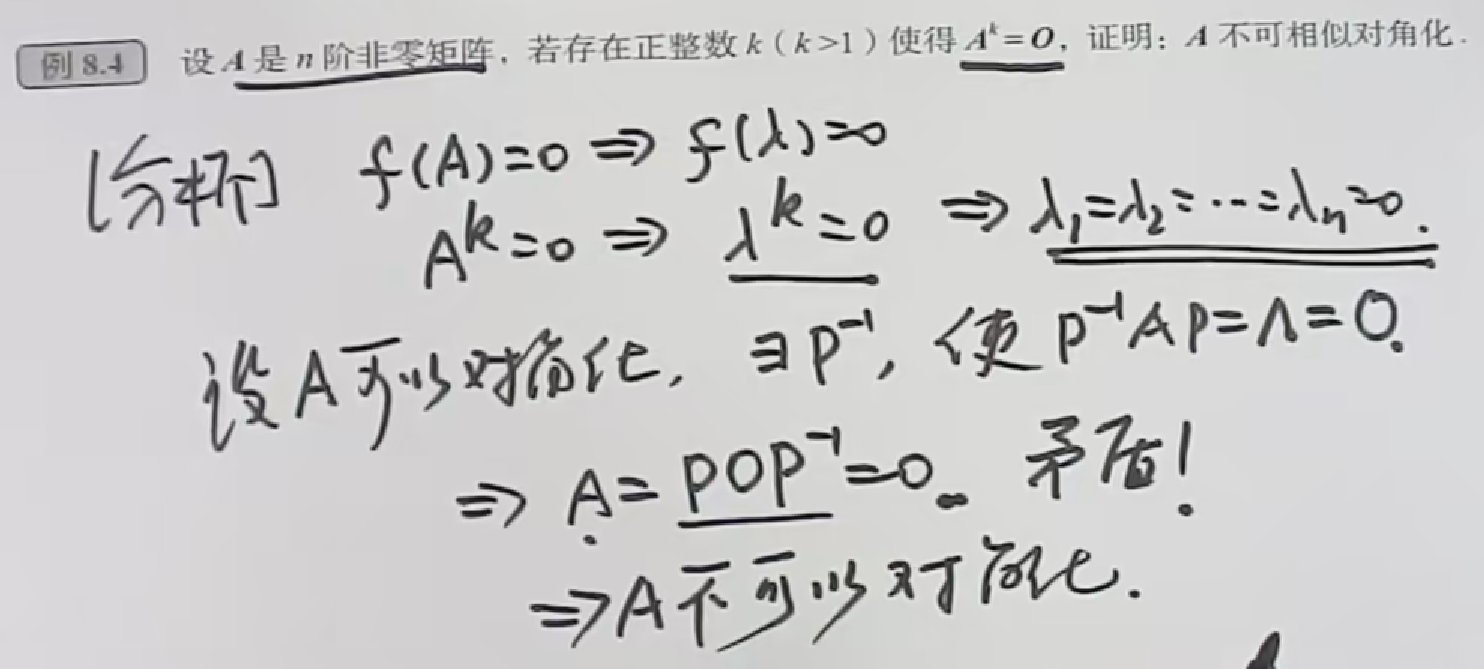 例 8.4 设 A 是 n 阶非零矩阵，若存在正整数 k（k>1）使得 Aᵏ=O，证明：A 不可相似对角化.
[分析] f(A)=0 ⇒ f(λ)=0
Aᵏ=0 ⇒ λᵏ=0 ⇒ λ₁=λ₂=⋯=λₙ=0.
设A可以对角化, ∃P⁻¹, 使 P⁻¹AP=Λ=O.
⇒ A=POP⁻¹=0. 矛盾!
⇒A不可以对角化.